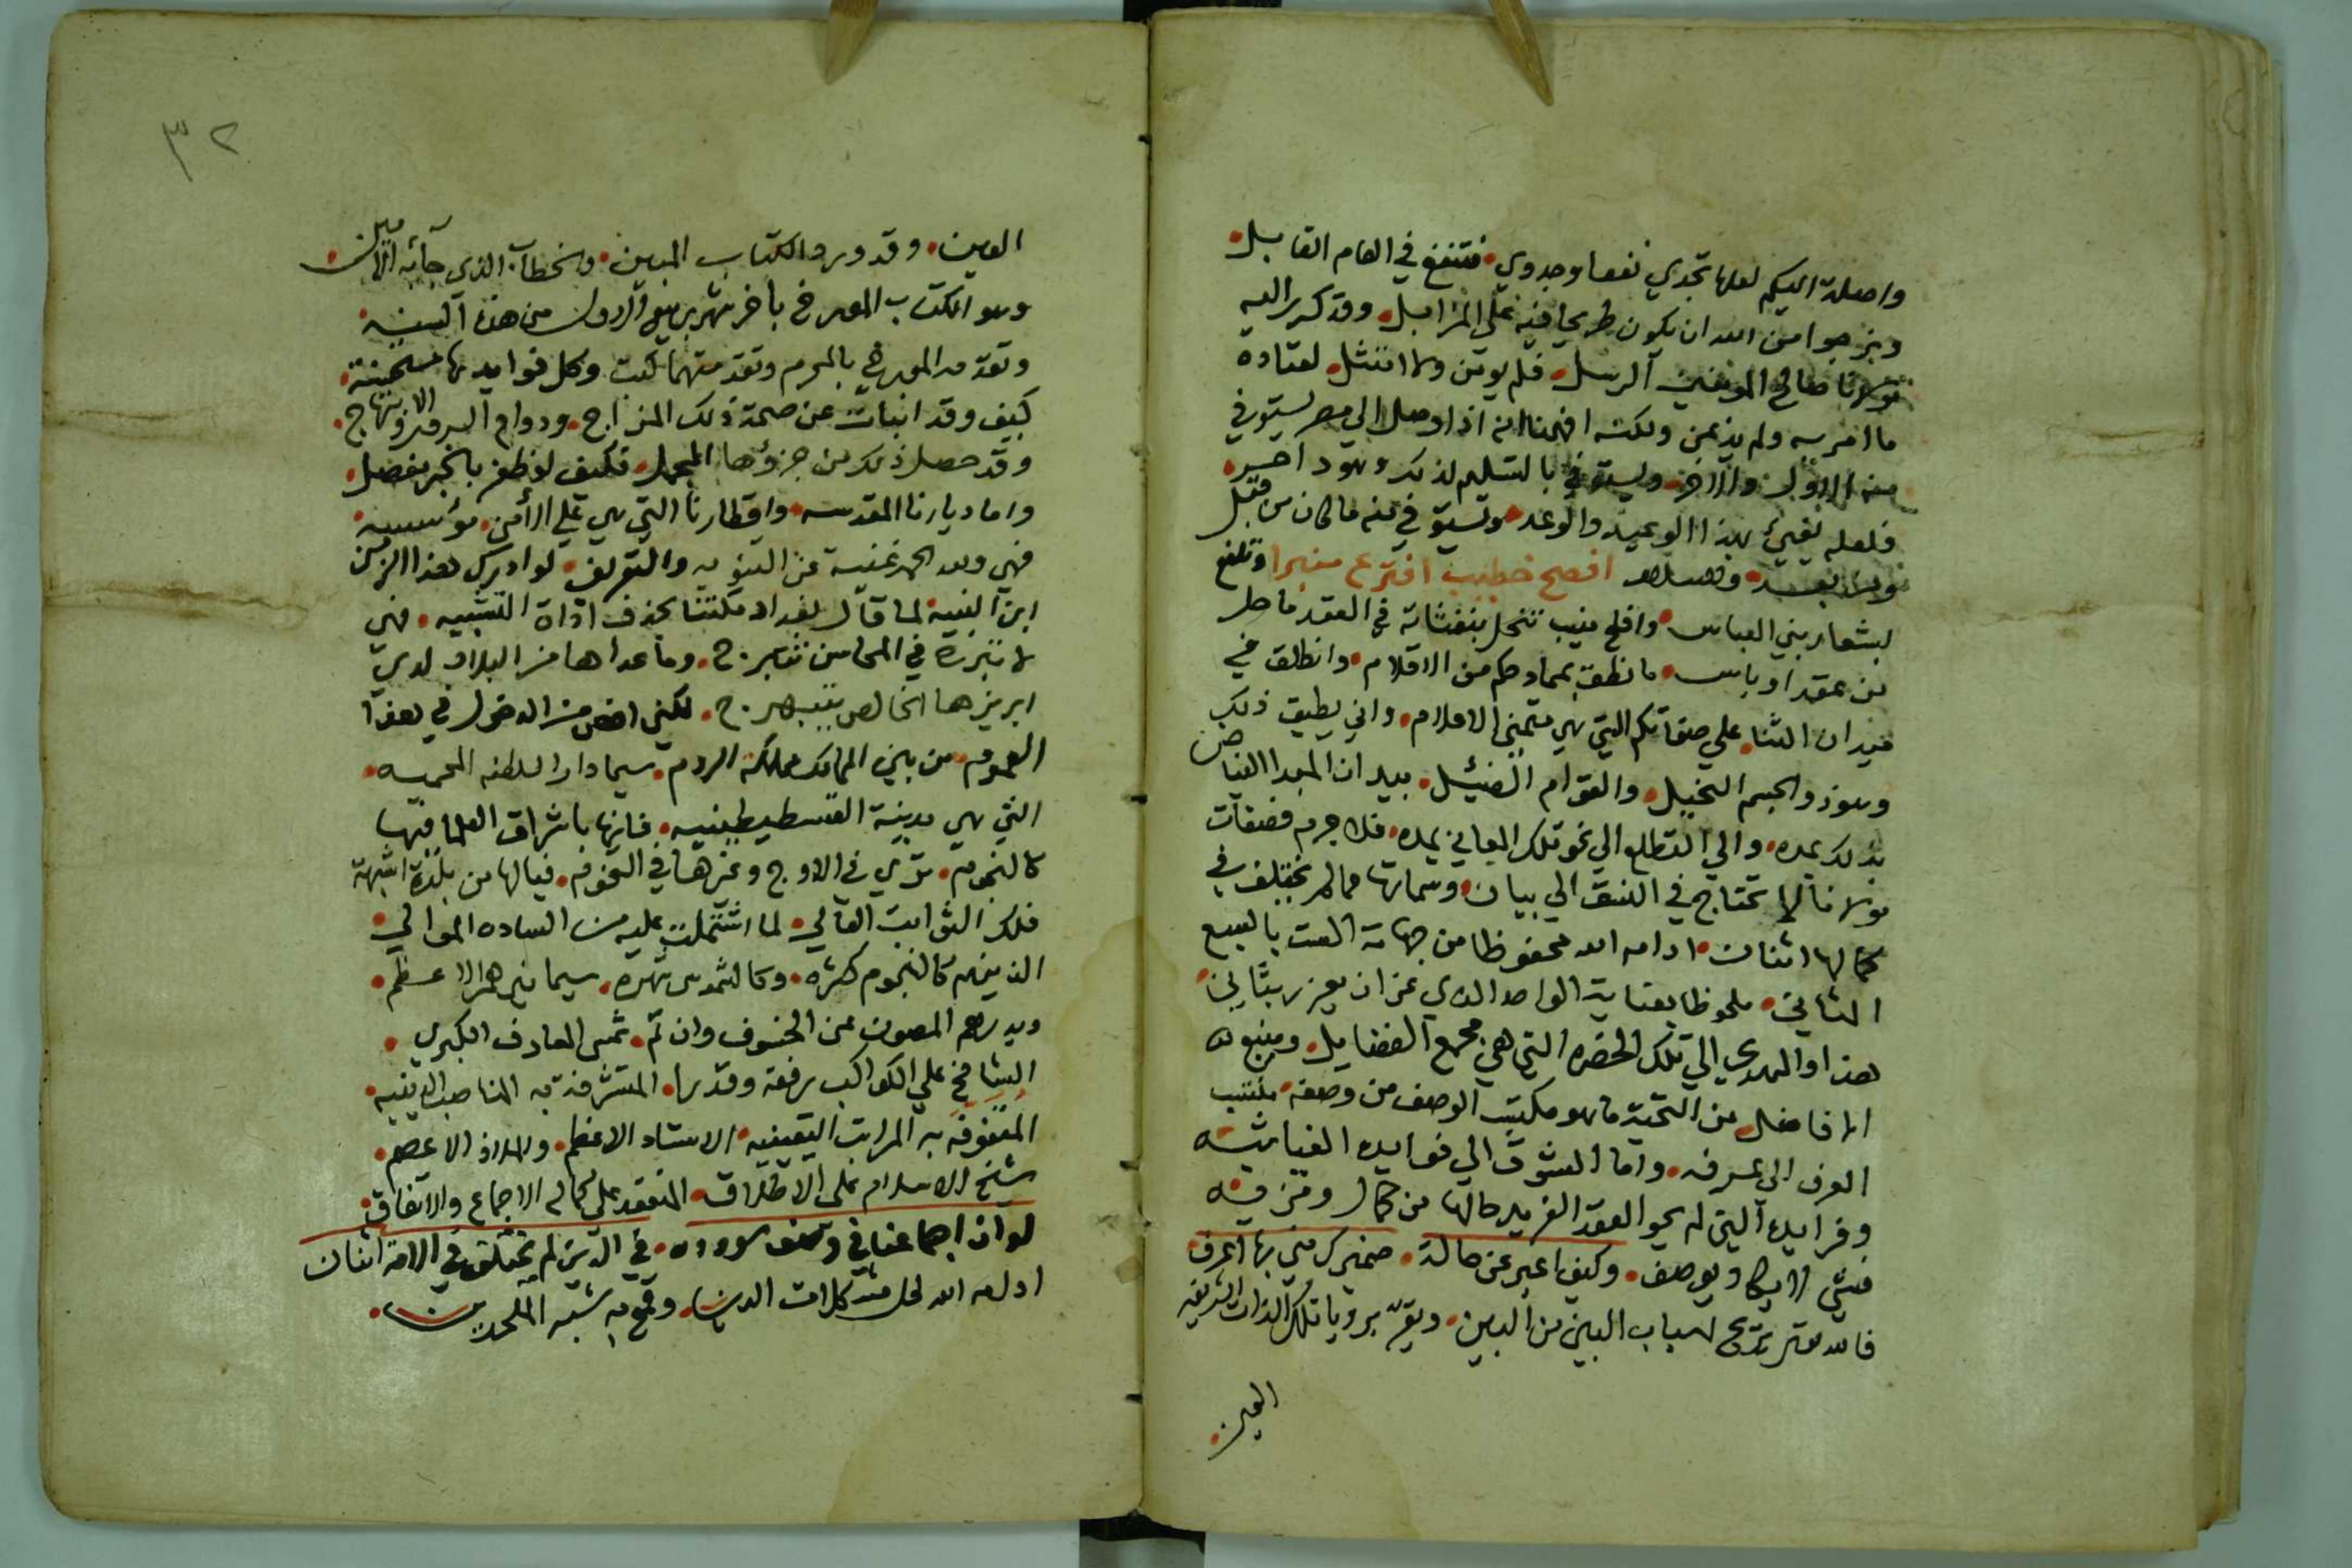 واصلة اليكم لعلها تجدي نفعا وجدوي • فتنفع في العام القابل •
ونرجوا من الله ان يكون طريحا فيه علي المزابل • وقد كرر اليه
مولانا صالح المرسل • فلم يوتن ولا امتثل • لعتاده
ما امر به ولم يذعن ولكنه افهمنا انه اذا وصل الي مصر يستوفي
منه الاول والاخر • ويستوفي بالتسليم لذلك وهود احسر •
فلعله يفيء بهذا الوعيد والوعد • وتستوفي منه ما كان من قبل
ومن بعد • افصح خطيب افترع منبرا وتلفع
بشعار بني العباس • وافلح منيب تنحل بنفثاته في العقد ما حل
من عقد او باس • ما نطق بمحامدكم من الاقلام • وانطلق في
ميدان الثنا • علي صفاتكم التي هي متمني الاعلام • واني يطيق ذلك
وهو ذو الجسم النحيل • والقوام الضئيل • بيد ان المبدا الفياض
بذلك يمده • والي التطلع الي نحو تلك المعاني يمده • فلا جرم فصفات
مولانا لا تحتاج في النسق الي بيان • وسماتها مما لم يختلف في
كمالها اثنان • ادامه الله محفوظا من جهاته الست بالسبع
المثاني • ملحوظا بعناية الواحد الذي عز ان يعزز بثاني •
هذا والمهدي الي تلك الحضره التي هي مجمع الفضايل • ومنبع
الافاضل • من التحية ما هو مكتسب الوصف من وصفه • منتسب
العرف الي عرفه • واما الشوق الي فوايده الغياثيه
وفرايده التي لم يحو العقد الفريد مالها من كمال ومزيه
فشي لا يكاد يوصف • وكيف اعبر عن حالة • ضميرك مني بها اعرف •
فالله تعالى يزيح اسباب البين من البين • ويقر برويا تلك الذات الشريفه
العين •
٣٢
العين • وقد ورد الكتاب المبين • والخطاب الذي جآء به الامين •
وهو الكتاب المورخ باخر شهر ربيع الاول من هذه السنه •
وتقدمه المورخ بالمحرم وتقدمتهما كتب وكل فوايدها مستحسنة •
كيف وقد انبات عن صحة ذلك المزاج • ودوام السرور والابتهاج •
وقد حصل ذلك من جزوها المجمل • فكيف لو ظفر بالخبر مفصل •
واما ديارنا المقدسه • واقطارنا التي هي علي الامن موسسه •
فهي ولله الحمد غنية عن التنويه والتعريف • لو ادرك هذا الزمن
ابن النبيه لما قال بغداد مكتنا بحذف اداة التشبيه • فهي
لا تبرح في المحاسن تتبرج • وما عداها من البلاد لدي
ابريزها الخالص يتبهرج • لكني اخص من الدخول في هذا
العموم • من بين الممالك مملكة الروم • سيما دار السلطنه المحميه •
التي هي مدينة القسطنطينيه • فانها باشراق العلما فيها
كالنجوم • تري في الاوج وغيرها في التخوم • فيالها من بلدة اشبهت
فلك الثوابت العالي • لما اشتملت عليه من الساده الموالي •
الذينهم كالنجوم كثره • وكالشموس شهره • سيما نيرهم الاعظم •
وبدرهم المصون عن الخسوف وان تم • شمس المعارف الكبري •
الشامخ علي الكواكب رفعة وقدرا • المتشرفة به المناصب الدينيه •
المتفوقه به المراتب اليقينيه • الاستاد الاعظم • والملاذ الاعصم •
شيخ الاسلام علي الاطلاق • المنعقد علي كماله الاجماع والاتفاق •
لو ان اجماعنا في وصف سودده • في الدين لم يختلف في الامة اثنان
ادامه الله لحل مشكلات الدين • وقمع به شبه الملحدين •